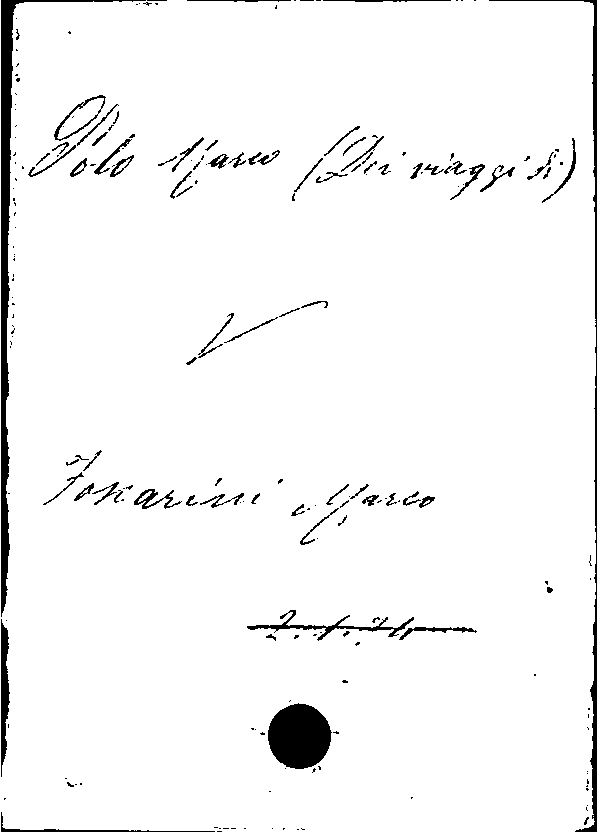 Polo Marco (Dei viaggi di)
V
Foscarini Marco